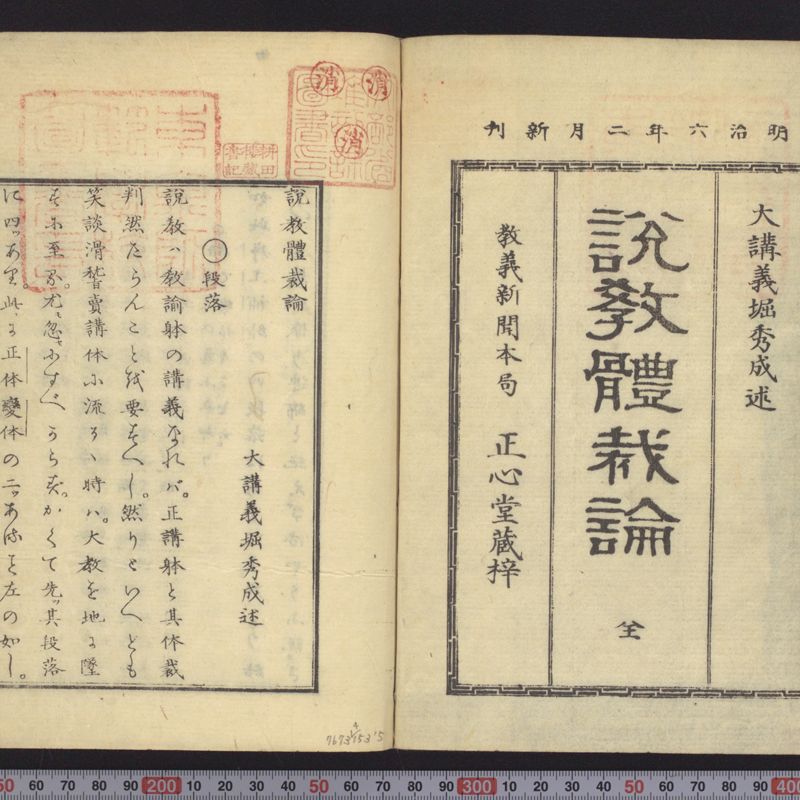 明治六年二月新刊
大講義堀秀成述
說敎體裁論
全
敎義新聞本局 正心堂蔵梓
說敎體裁論
大講義堀秀成述
〇段落
說敎ハ敎諭躰の講義なれバ。正講躰と其体裁
判然たらんことを要すべし。然りといへども
笑談滑稽賣講体に流るゝ時ハ。大敎を地に墜
すに至る。尤忽にすべからず。かくて先ッ其段落
に四ッあり。此に正体變体の二ッあること左の如し。
消
消
消
7673
50 60 70 80 90 200 10 20 30 40 50 60 70 80 90 300 10 20 30 40 50 60 70 80 90 400